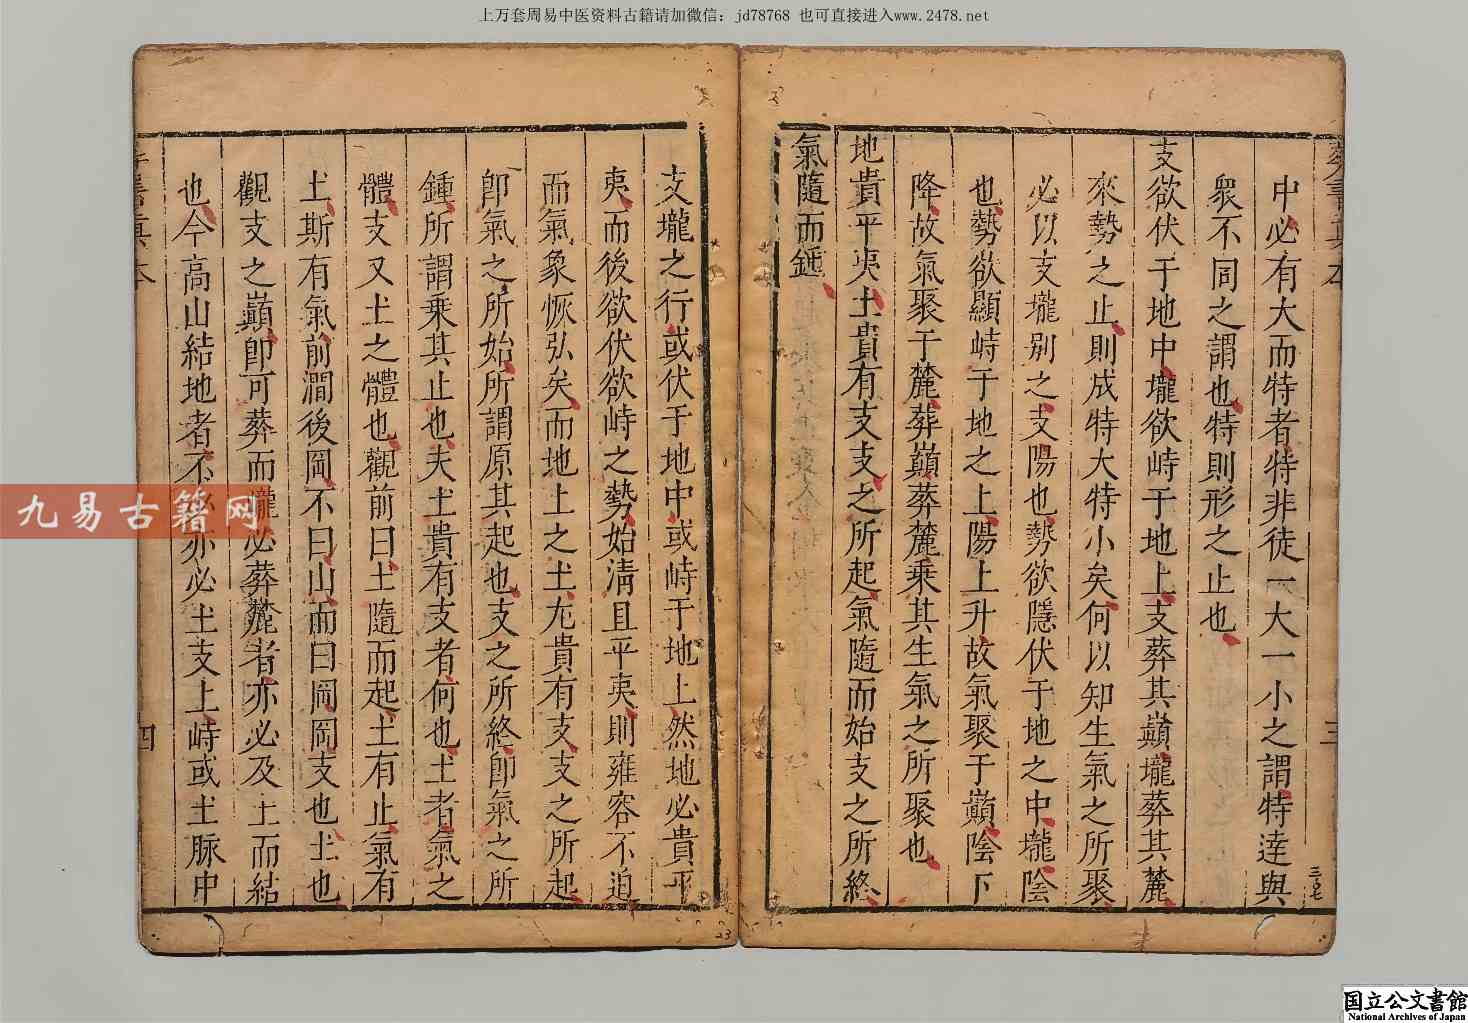 上万套周易中医资料古籍请加微信：jd78768 也可直接进入www.2478.net
葬書真本
三
三百七
中必有大而特者特非徒一大一小之謂特達與
衆不同之謂也特則形之止也
支欲伏于地中壠欲峙于地上支葬其巔壠葬其麓
來勢之止則成特大特小矣何以知生氣之所聚
必以支壠别之支陽也勢欲隱伏于地之中壠陰
也勢欲顯峙于地之上陽上升故氣聚于巔陰下
降故氣聚于麓葬巔葬麓乘其生氣之所聚也
地貴平夷土貴有支支之所起氣隨而始支之所終
氣隨而鍾
支壠之行或伏于地中或峙于地上然地必貴平
夷而後欲伏欲峙之勢始清且平夷則雍容不迫
而氣象恢弘矣而地上之土尤貴有支支之所起
卽氣之所始所謂原其起也支之所終卽氣之所
鍾所謂乘其止也夫土貴有支者何也土者氣之
體支又土之體也觀前曰土隨而起土有止氣有
土斯有氣前澗後岡不曰山而曰岡岡支也土也
觀支之巔卽可葬而壠必葬麓者亦必及土而結
也今高山結地者不必亦必土支上峙或土脉中
四
九易古籍网
国立公文書館
National Archives of Japan